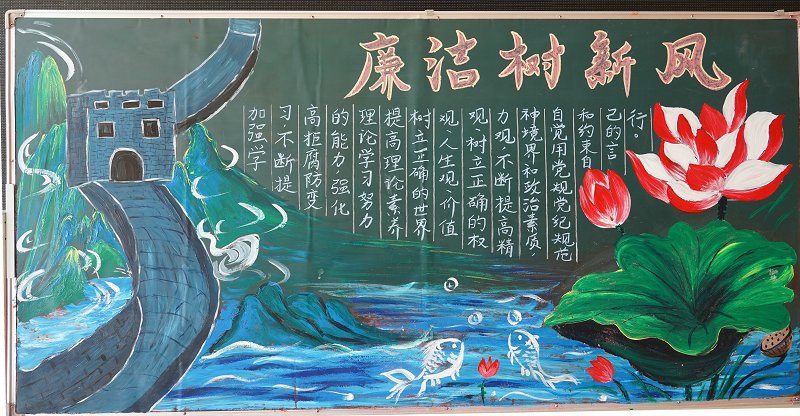 廉洁树新风
加强学
习、不断提
高拒腐防变
的能力、强化
理论学习努力
提高理论素养
树立正确的世界
观、人生观、价值
观、树立正确的权
力观、不断提高精
神境界和政治素质，
自觉用党规党纪规范
和约束自
己的言
行。